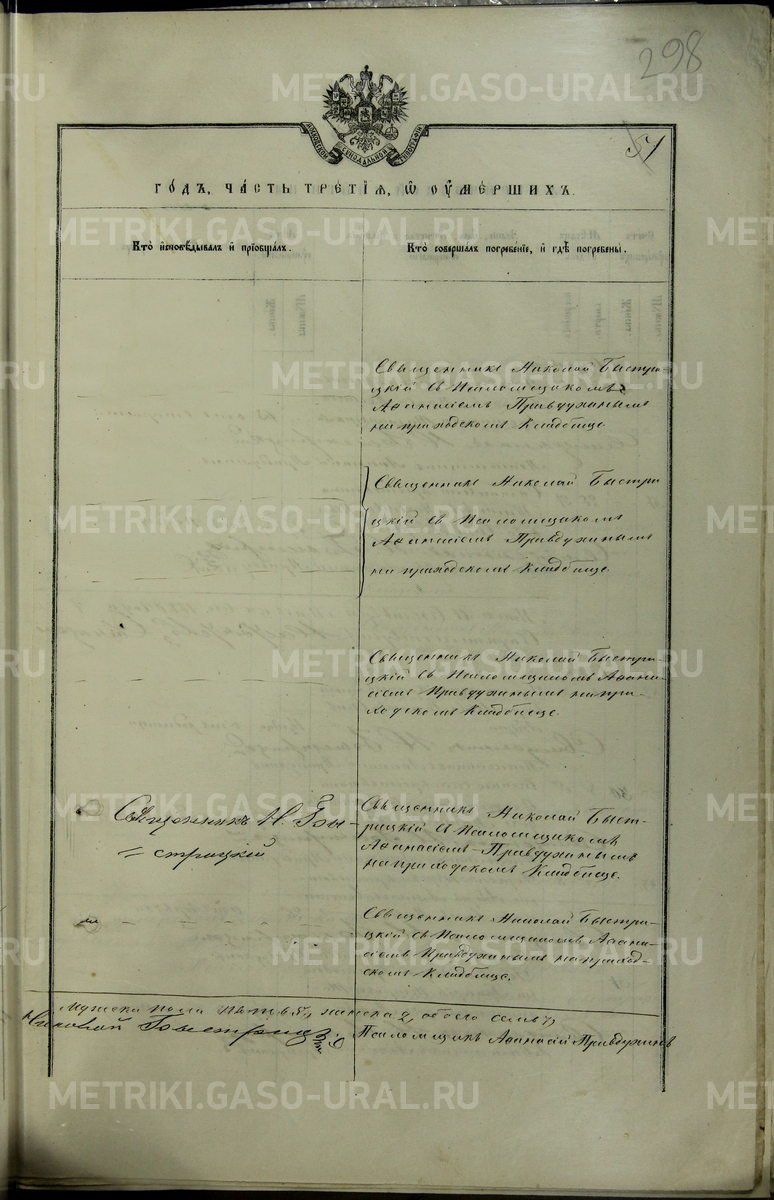 298
51
МОСКОВСКОЙ СѴНОДАЛЬНОЙ ТИПОГРАФІИ
ГОДЪ, ЧАСТЬ ТРЕТІЯ, Ѿ ОУМЕРШИХЪ.
Кто исповѣдывалъ и пріобщалъ.
Кто совершалъ погребеніе, и гдѣ погребены.
Священникъ Николай Быстри-
цкій съ Псаломщикомъ
Аѳанасіемъ Правдухинымъ
на приходскомъ Кладбище.
Священникъ Николай Быстри
цкій съ Псаломщикомъ
Аѳанасіемъ Правдухинымъ
на приходскомъ Кладбище.
Священникъ Николай Быстри-
цкій съ Псаломщикомъ Аѳана-
сіемъ Правдухинымъ на при-
ходскомъ Кладбище.
Священникъ Н. Бы-
стрицкій
Священникъ Николай Быст-
рицкій съ Псаломщикомъ
Аѳанасіемъ Правдухинымъ
на приходскомъ Кладбище.
Священникъ Николай Быстри-
цкій съ Псаломщикомъ Аѳана-
сіемъ Правдухинымъ на приход-
скомъ Кладбище.
Мужска пола пять 5, женска 2, обоего семь 7,
Николай Быстрицкій Псаломщикъ Аѳанасій Правдухинъ
METRIKI.GASO-URAL.RU